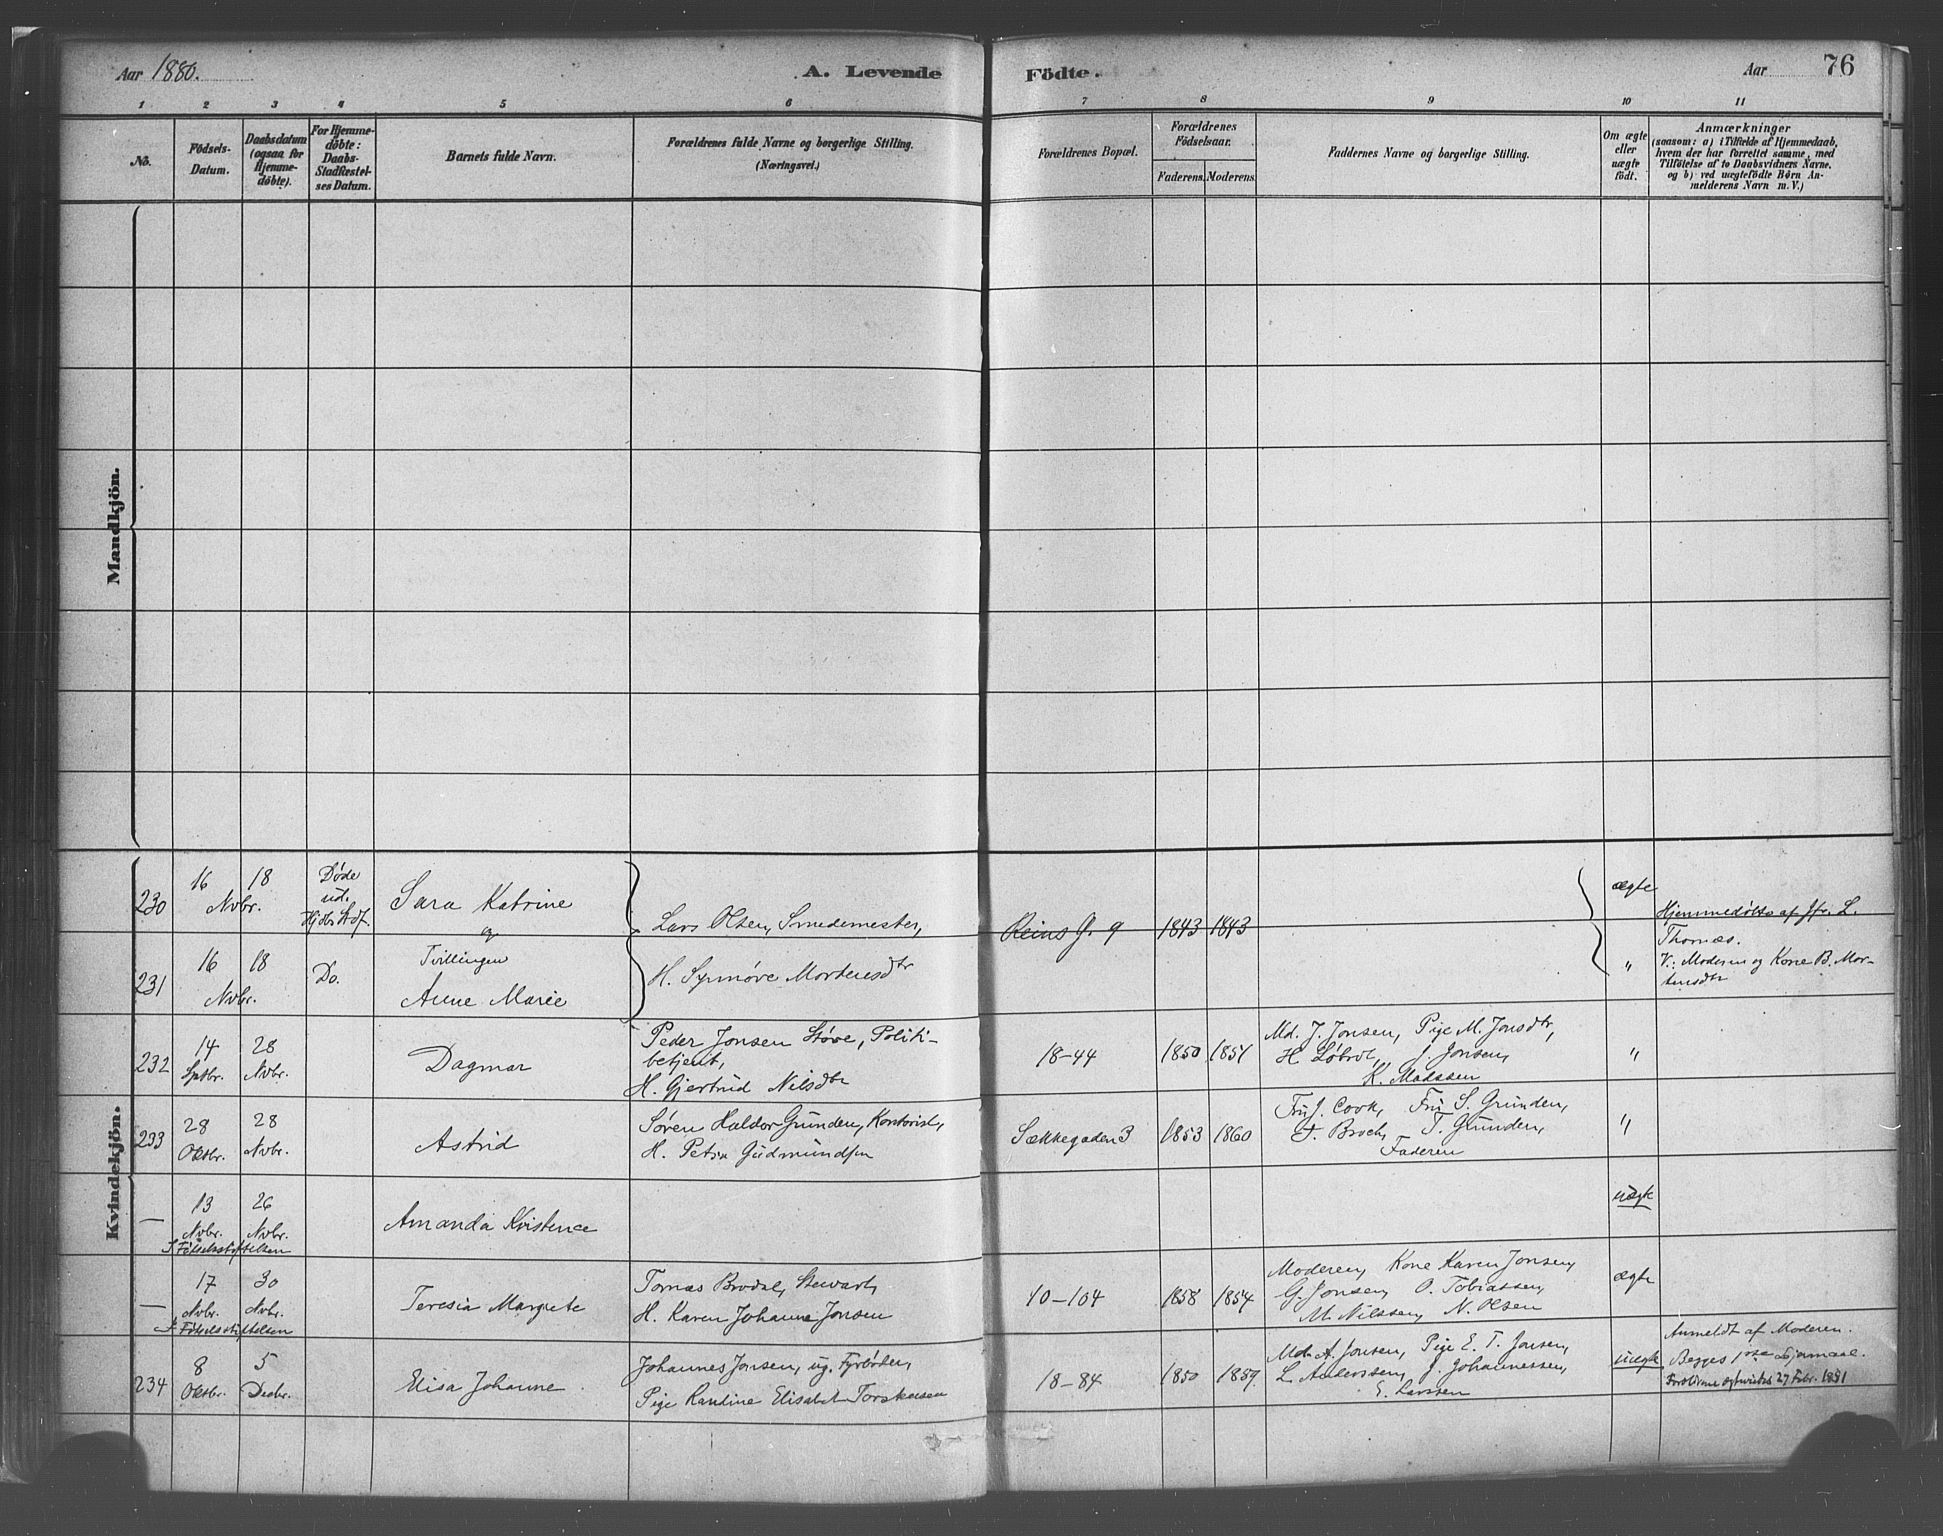 Aar 1880.
A. Levende Födte.
Aar
76
1 2 3 4 5 6 7 8 9 10 11
No.
Födsels-
Datum.
Daabsdatum
(ogsaa for
Hjemme-
døbte).
For Hjemme-
døbte:
Daabs-
Stadfæstel-
ses Datum.
Barnets fulde Navn.
Forældrenes fulde Navne og borgerlige Stilling.
(Næringsvei.)
Forældrenes Bopæl.
Forældrenes
Födselsaar.
Faderens. Moderens.
Faddernes Navne og borgerlige Stilling.
Om ægte
eller
uægte
født.
Anmærkninger
(saasom: a) i Tilfælde af Hjemmedaab,
hvem der har forrettet samme, med
Tilføielse af to Daabsvidners Navne,
og b) ved uægtefödte Börn An-
melderens Navn m. V.)
Mandkjön.
Kvindekjön.
230
16 18
Nvbr.
Døde
ud.
Hjdbs Stdf.
Sara Katrine
og
Lars Olsen, Smedemester,
H. Synnøve Mortensdtr
Reins G. 9
1843 1843
ægte
Hjemmedøbte af Jfr. L.
Thomæs.
V.: Moderen og Kone B. Mor-
tensdtr
231
16 18
Nvbr.
Do.
Tvillingen
Anne Marie
"
232
14 28
Sptbr. Nvbr.
Dagmar
Peder Jonsen Støve, Politi-
betjent,
H. Gjertrud Nilsdtr
18-44
1850 1851
Md. J. Jonsen, Pige M. Jonsdtr,
H. J. Jonsen,
K. Madssen
"
233
28 28
Oktbr. Nvbr.
Astrid
Søren Haldor Grunden, Kontorist,
H. Petra Gudmundsen
Sækkegaden 3
1853 1860
Fru J. Cook, Fru S. Grunden,
F. Broch, T. Grunden,
Faderen
"
—
13 26
Nvbr. Nvbr.
I Fødselsstiftelsen
Amanda Kristence
uægte
—
17 30
Nvbr. Nvbr.
I Fødselsstiftelsen
Teresia Margrete
Tomas Brodal, Stewart,
H. Karen Johanne Jonsen
10-104
1858 1854
Moderen, Kone Karen Jonsen,
G. Jonsen, O. Tobiassen,
M. Nilssen, N. Olsen
ægte
234
8 5
Oktbr. Decbr.
Elisa Johanne
Johannes Jensen, ug. Fyrbøder,
Pige Randine Elisabet Torskelsen
18-84
1850 1859.
Md. A. Jonsen, Pige E. T. Jonsen,
L. Anderssen, J. Johannessen,
E. Larssen
uægte
Anmeldt af Moderen.
Begges 1ste Leiermaal.
27 Febr. 1881